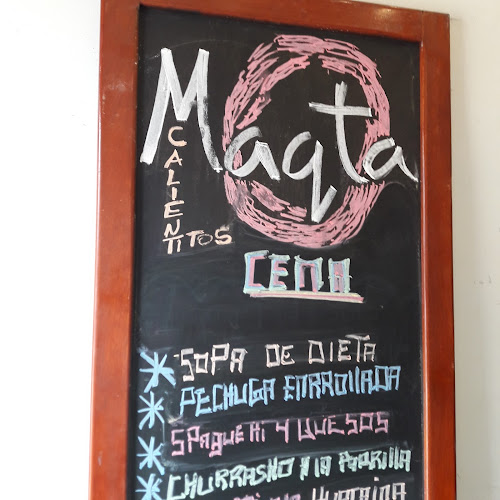 Maqta
CALIENTITOS
CENA
SOPA DE DIETA
PECHUGA ENRROLLADA
SPAGUETTI 4 QUESOS
CHURRASKO A LA PARRILLA
HUANCAINA